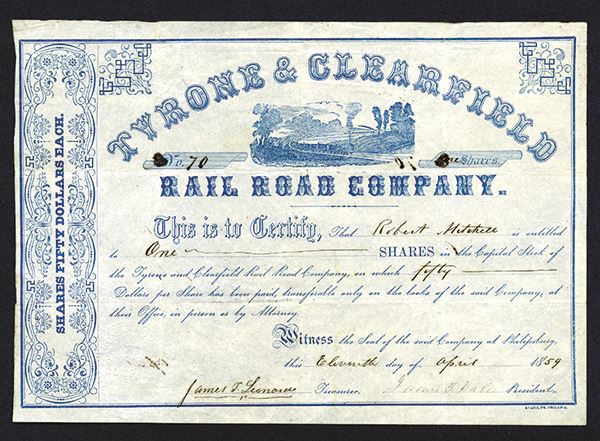 TYRONE & CLEARFIELD
No 70 One Shares.
RAIL ROAD COMPANY.
SHARES FIFTY DOLLARS EACH.
This is to Certify, That Robert Mitchell is entitled
to One SHARES in the Capital Stock of
the Tyrone and Clearfield Rail Road Company, on which fifty
Dollars per Share has been paid, transferable only on the books of the said Company, at
their Office, in person or by Attorney.
Witness the Seal of the said Company at Philipsburg,
this Eleventh day of April 1859
James T. Leonard Treasurer. President